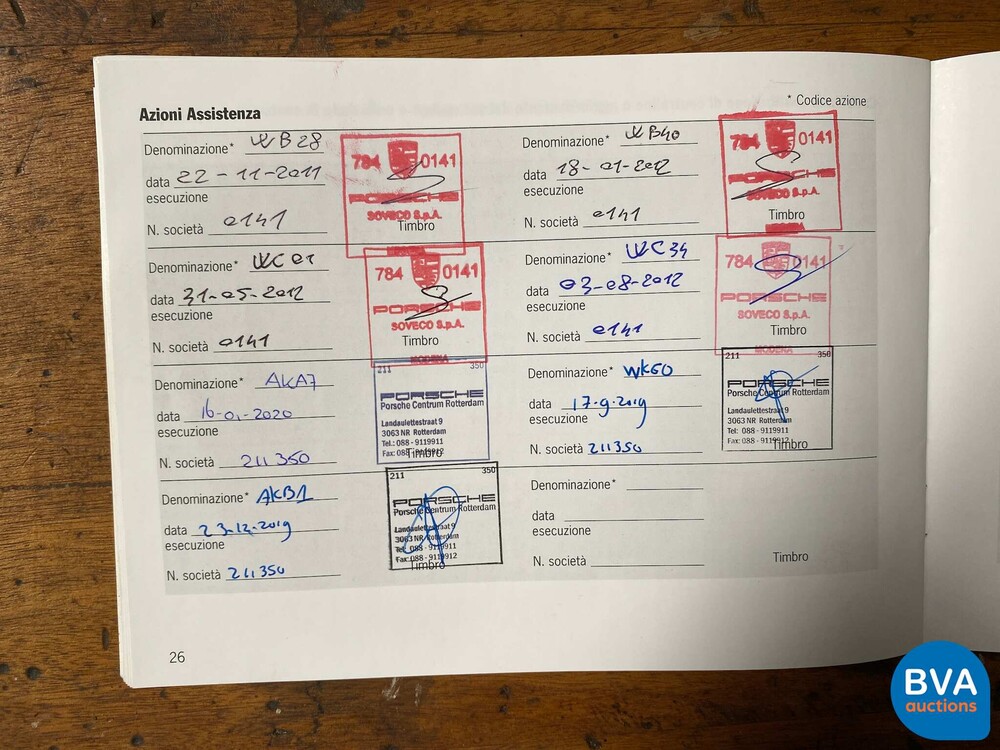 * Codice azione
Azioni Assistenza
Denominazione* WB28
data 22-11-2011
esecuzione
N. società 0141
784 0141
PORSCHE
SOVECO S.p.A.
Timbro
Denominazione* WB40
data 18-01-2012
esecuzione
N. società 0141
784 0141
PORSCHE
SOVECO S.p.A.
Timbro
Denominazione* WC01
data 31-05-2012
esecuzione
N. società 0141
784 0141
PORSCHE
SOVECO S.p.A.
Timbro
MODENA
Denominazione* WC34
data 03-08-2012
esecuzione
N. società 0141
784 0141
PORSCHE
SOVECO S.p.A.
Timbro
MODENA
Denominazione* AKA7
data 16-01-2020
esecuzione
N. società 211350
211 350
PORSCHE
Porsche Centrum Rotterdam
Landaulettestraat 9
3063 NR Rotterdam
Tel.: 088 - 9119911
Fax: 088 - 9119912
Timbro
Denominazione* WK60
data 17-9-2019
esecuzione
N. società 211350
211 350
PORSCHE
Porsche Centrum Rotterdam
Landaulettestraat 9
3063 NR Rotterdam
Tel: 088 - 9119911
Fax: 088 - 9119912
Timbro
Denominazione* AKB1
data 23-12-2019
esecuzione
N. società 211350
211 350
PORSCHE
Porsche Centrum Rotterdam
Landaulettestraat 9
3063 NR Rotterdam
Tel: 088 - 9119911
Fax: 088 - 9119912
Timbro
Denominazione*
data
esecuzione
N. società
Timbro
26
BVA
auctions